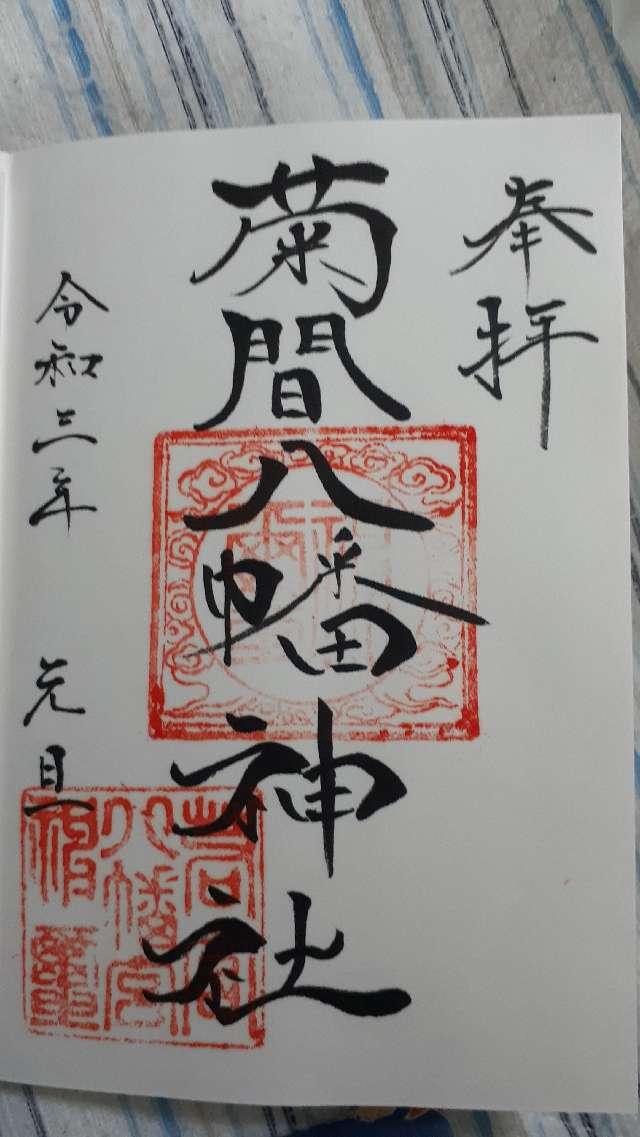 奉拝
菊間八幡神社
令和三年 元旦